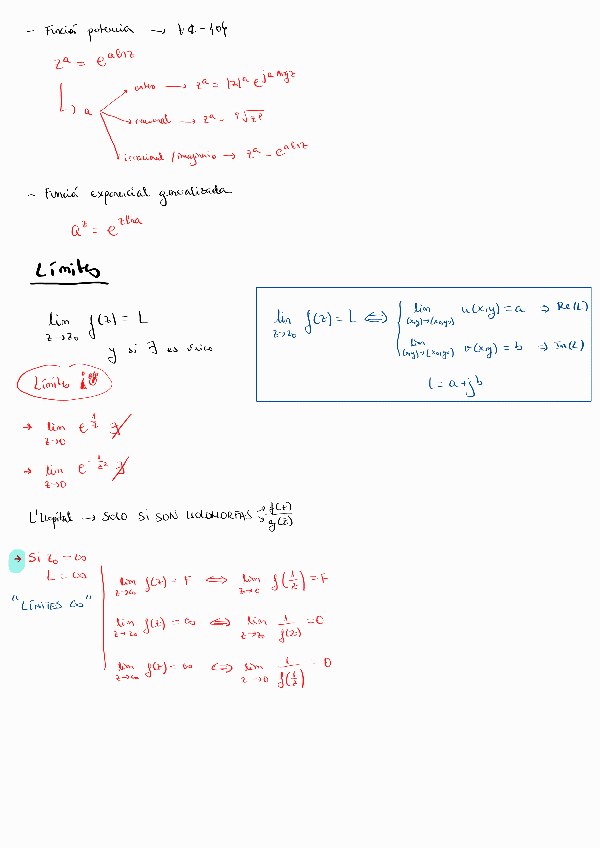 - Función potencia →
z^a = e^{a ln z}
a
entero → z^a = |z|^a e^{ja arg z}
racional → z^a = ^q√z^p
irracional / imaginario → z^a = e^{a ln z}
- Función exponencial generalizada
a^z = e^{z ln a}
Límites
lim z→z₀ f(z) = L
y si ∃ es único
lim z→z₀ f(z) = L ⟺ { lim (x,y)→(x₀,y₀) u(x,y) = a ⇒ Re(L)
lim (x,y)→(x₀,y₀) v(x,y) = b ⇒ Im(L)
L = a + jb
Límites
→ lim z→0 e^{1/z} ∄
→ lim z→0 e^{-1/z²} ∄
L'Hopital → SOLO SI SON HOLOMORFAS → f(z) / → g(z)
→ Si z₀ = ∞
L = ∞
"LÍMITES ∞"
lim z→∞ f(z) = F ⟺ lim z→0 f(1/z) = F
lim z→z₀ f(z) = ∞ ⟺ lim z→z₀ 1/f(z) = 0
lim z→∞ f(z) = ∞ ⟺ lim z→0 1/f(1/z) = 0